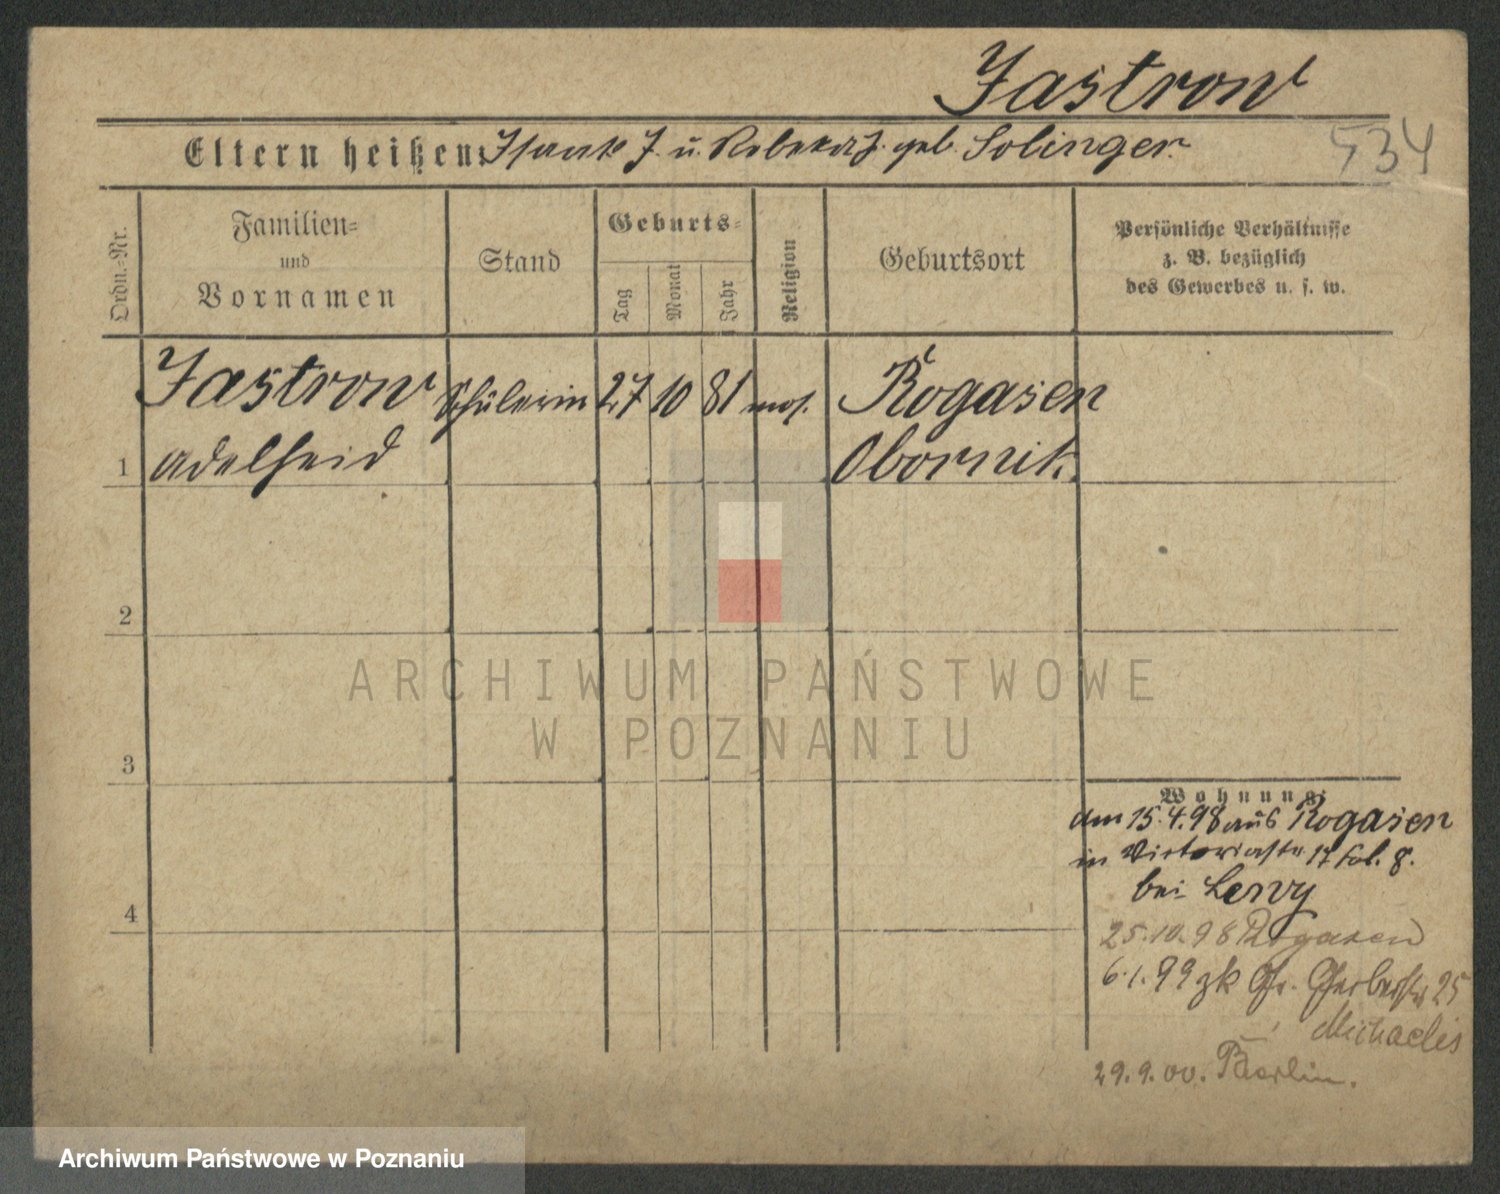 Jastrow
534
Eltern heißen: Isaak J. u. Rebeka J. geb. Solinger.
Ordn.-Nr.
Familien-
und
Vornamen
Stand
Geburts-
Tag
Monat
Jahr
Religion
Geburtsort
Persönliche Verhältnisse
z. B. bezüglich
des Gewerbes u. s. w.
Jastrow Schülerin 27 10 81 mos. Rogasen
1 Adelheid Obornik.
2
ARCHIWUM PAŃSTWOWE
W POZNANIU
3
Wohnung:
am 15.4.98 aus Rogasen
in Victoriastr 17 fol. 8.
bei Levy
4
25.10.98 Rogasen
6.1.99 zk Gr. Gerberstr 25
Michaelis
29.9.00. Berlin.
Archiwum Państwowe w Poznaniu